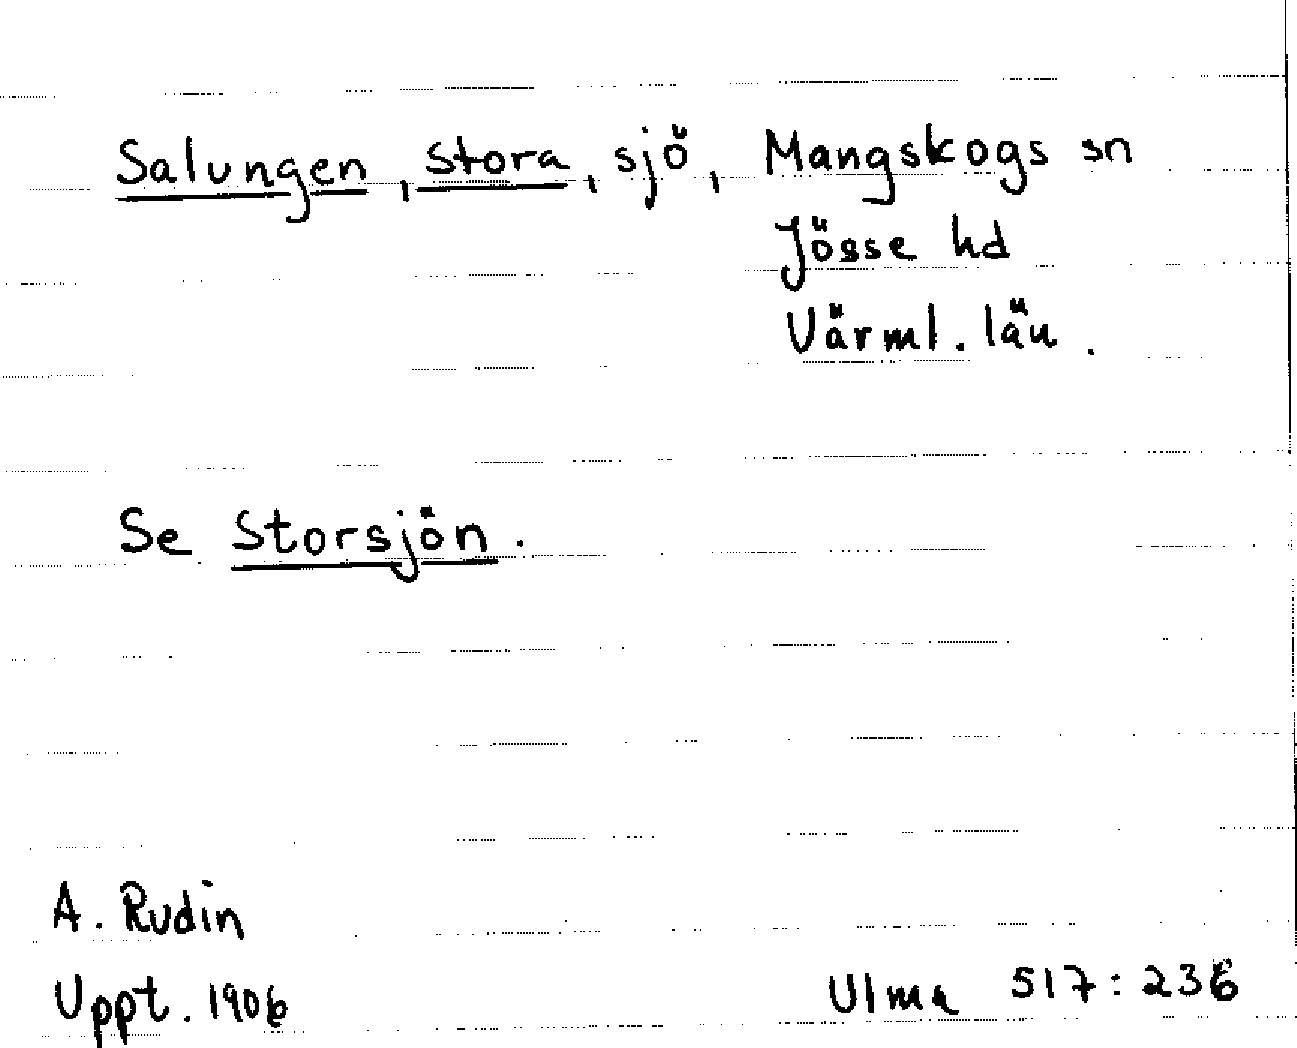 Salungen, stora, sjö, Mangskogs sn
Jösse hd
Värml. län.
Se Storsjön.
A. Rudin
Uppt. 1906
Ulma 517:236